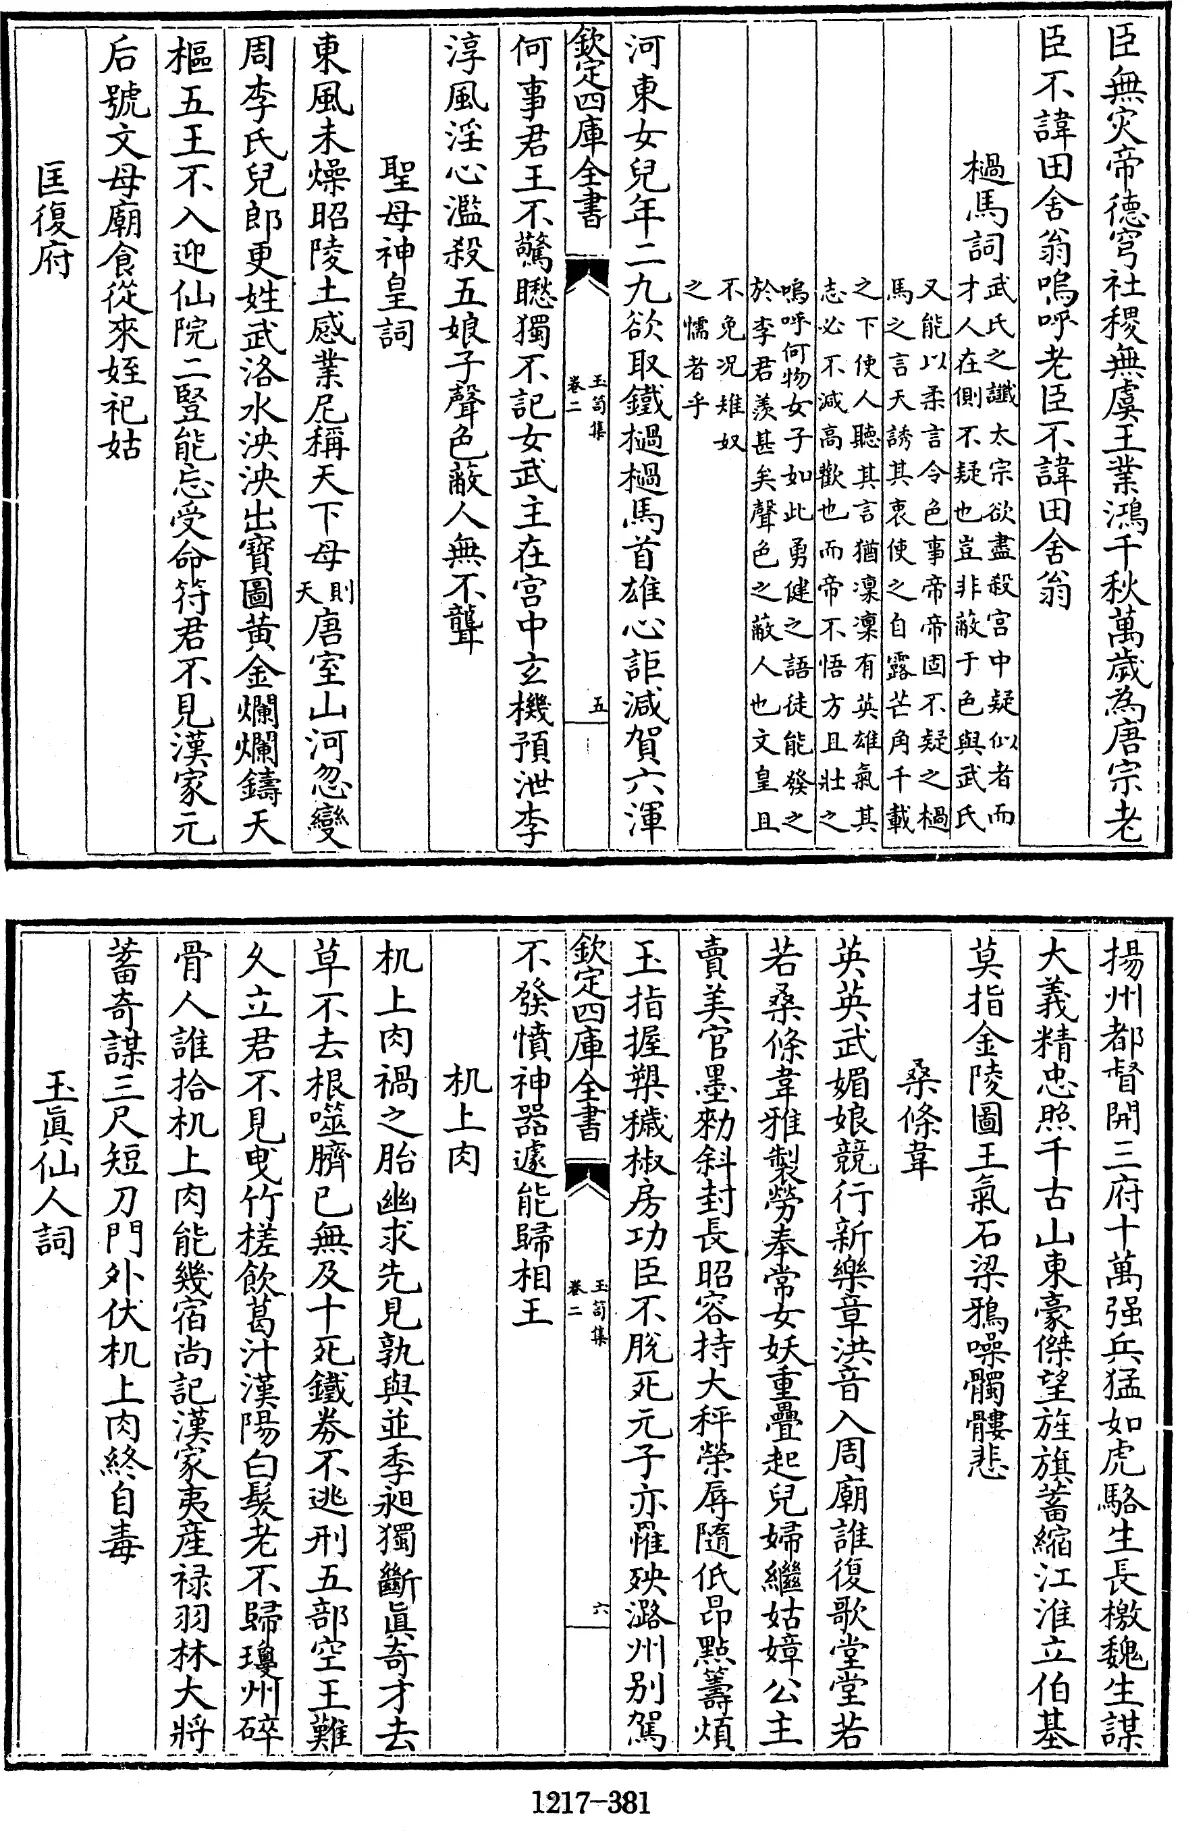 臣無灾帝徳穹社稷無虞王業鴻千秋萬歲為唐宗老
臣不諱田舍翁嗚呼老臣不諱田舍翁
檛馬詞
武氏之讖太宗欲盡殺宮中疑似者而
才人在側不疑也豈非蔽于色與武氏
又能以柔言令色事帝帝固不疑之檛
馬之言天誘其衷使之自露芒角千載
之下使人聽其言猶凜凜有英雄氣其
志必不減高歡也而帝不悟方且壯之
嗚呼何物女子如此勇健之語徒能發之
於李君羨甚矣聲色之蔽人也文皇且
不免況雉奴
之懦者乎
河東女兒年二九欲取鐵檛檛馬首雄心詎減賀六渾
欽定四庫全書
玉笥集
卷二
五
何事君王不驚𭀚獨不記女武主在宮中玄機預泄李
淳風淫心濫殺五娘子聲色蔽人無不聾
聖母神皇詞
東風未燥昭陵土感業尼稱天下母
則
天
唐室山河忽變
周李氏兒郎更姓武洛水泱泱出寶圖黃金爛爛鑄天
樞五王不入迎仙院二豎能忘受命符君不見漢家元
后號文母廟食從來姪祀姑
匡復府
揚州都督開三府十萬强兵猛如虎駱生長檄魏生謀
大義精忠照千古山東豪傑望旌旗蓄縮江淮立伯基
莫指金陵圖王氣石梁鴉噪髑髏悲
桑條韋
英英武媚娘競行新樂章洪音入周廟誰復歌堂堂若
若桑條韋雅製勞奉常女妖重疊起兒婦繼姑嫜公主
賣美官墨勑斜封長昭容持大秤榮辱隨低昂點籌煩
玉指握槊穢椒房功臣不脫死元子亦罹殃潞州别駕
欽定四庫全書
玉笥集
卷二
六
不發憤神器遽能歸相王
机上肉
机上肉禍之胎幽求先見孰與並季昶獨斷真奇才去
草不去根噬臍已無及十死鐵券不逃刑五部空王難
久立君不見曵竹槎飲葛汁漢陽白髮老不歸瓊州碎
骨人誰拾机上肉能幾宿尚記漢家夷産禄羽林大將
蓄奇謀三尺短刀門外伏机上肉終自毒
玉眞仙人詞
1217-381